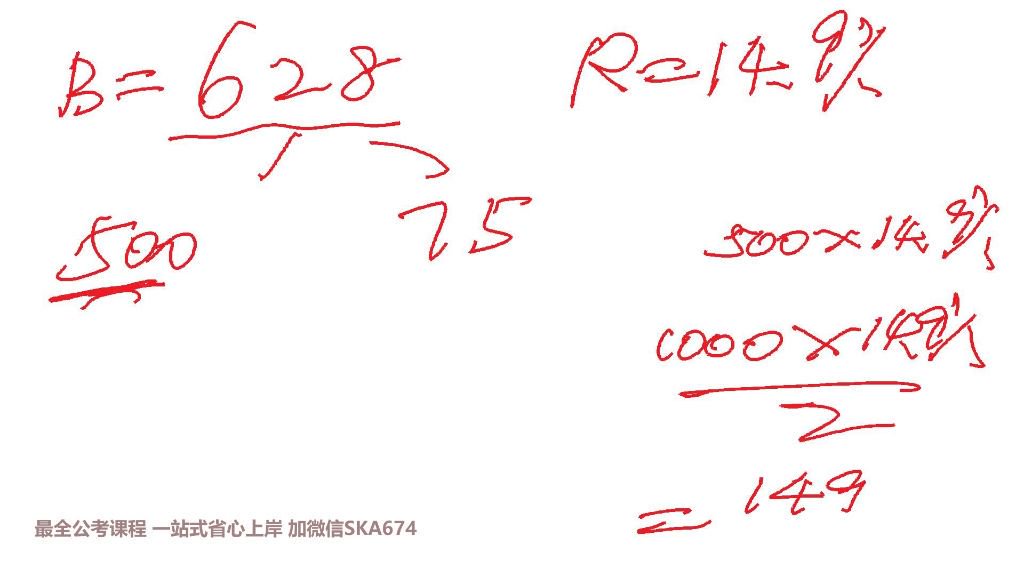 B=628
R=14.9%
500
75
500×14.9%
1000×14.9%
2
=149
最全公考课程 一站式省心上岸 加微信SKA674